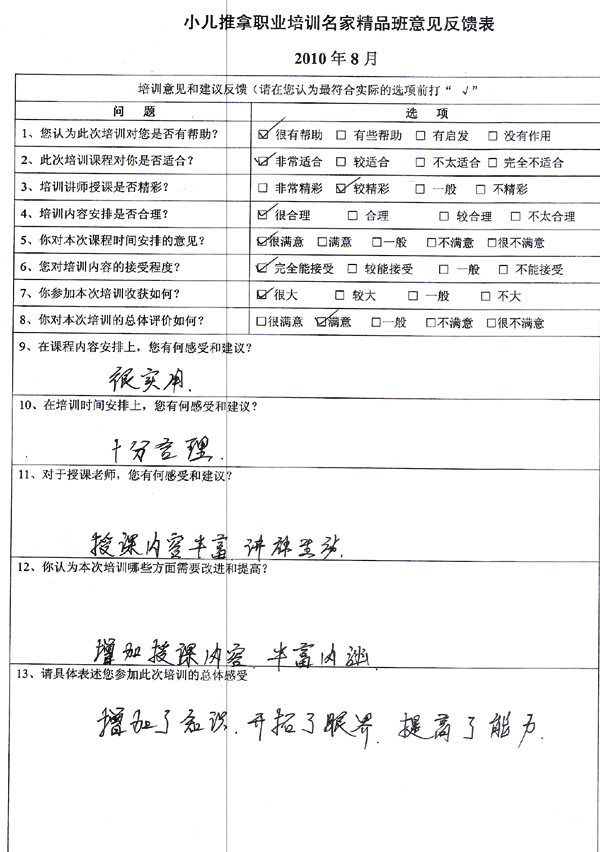 小儿推拿职业培训名家精品班意见反馈表
2010 年 8 月
培训意见和建议反馈（请在您认为最符合实际的选项前打“ √”
问 题 选 项
1、您认为此次培训对您是否有帮助？ ☑ 很有帮助 □ 有些帮助 □ 有启发 □ 没有作用
2、此次培训课程对你是否适合？ ☑ 非常适合 □ 较适合 □ 不太适合 □ 完全不适合
3、培训讲师授课是否精彩？ □ 非常精彩 ☑ 较精彩 □ 一般 □ 不精彩
4、培训内容安排是否合理？ ☑ 很合理 □ 合理 □ 较合理 □ 不太合理
5、你对本次课程时间安排的意见？ ☑很满意 □满意 □一般 □不满意 □很不满意
6、您对培训内容的接受程度？ ☑ 完全能接受 □ 较能接受 □ 一般 □ 不能接受
7、你参加本次培训收获如何？ ☑ 很大 □ 较大 □ 一般 □ 不大
8、你对本次培训的总体评价如何？ □很满意 ☑满意 □一般 □不满意 □很不满意
9、在课程内容安排上，您有何感受和建议？
很实用.
10、在培训时间安排上，您有何感受和建议？
十分合理.
11、对于授课老师，您有何感受和建议？
授课内容丰富 讲解生动.
12、你认为本次培训哪些方面需要改进和提高？
增加授课内容 丰富内涵
13、请具体表述您参加此次培训的总体感受
增加了知识.开拓了眼界 提高了能力.